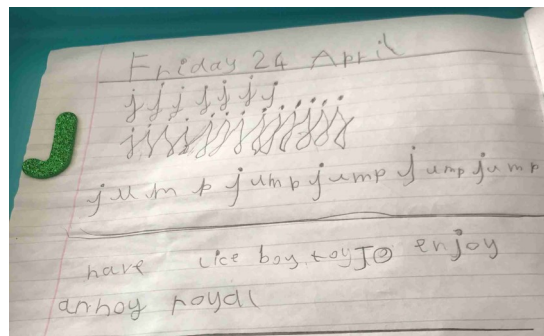 Friday 24 April
j j j j j j j
j j j j j j j j j j j j
jump jump jump jump jump
have lice boy toy Jo enjoy
annoy royal